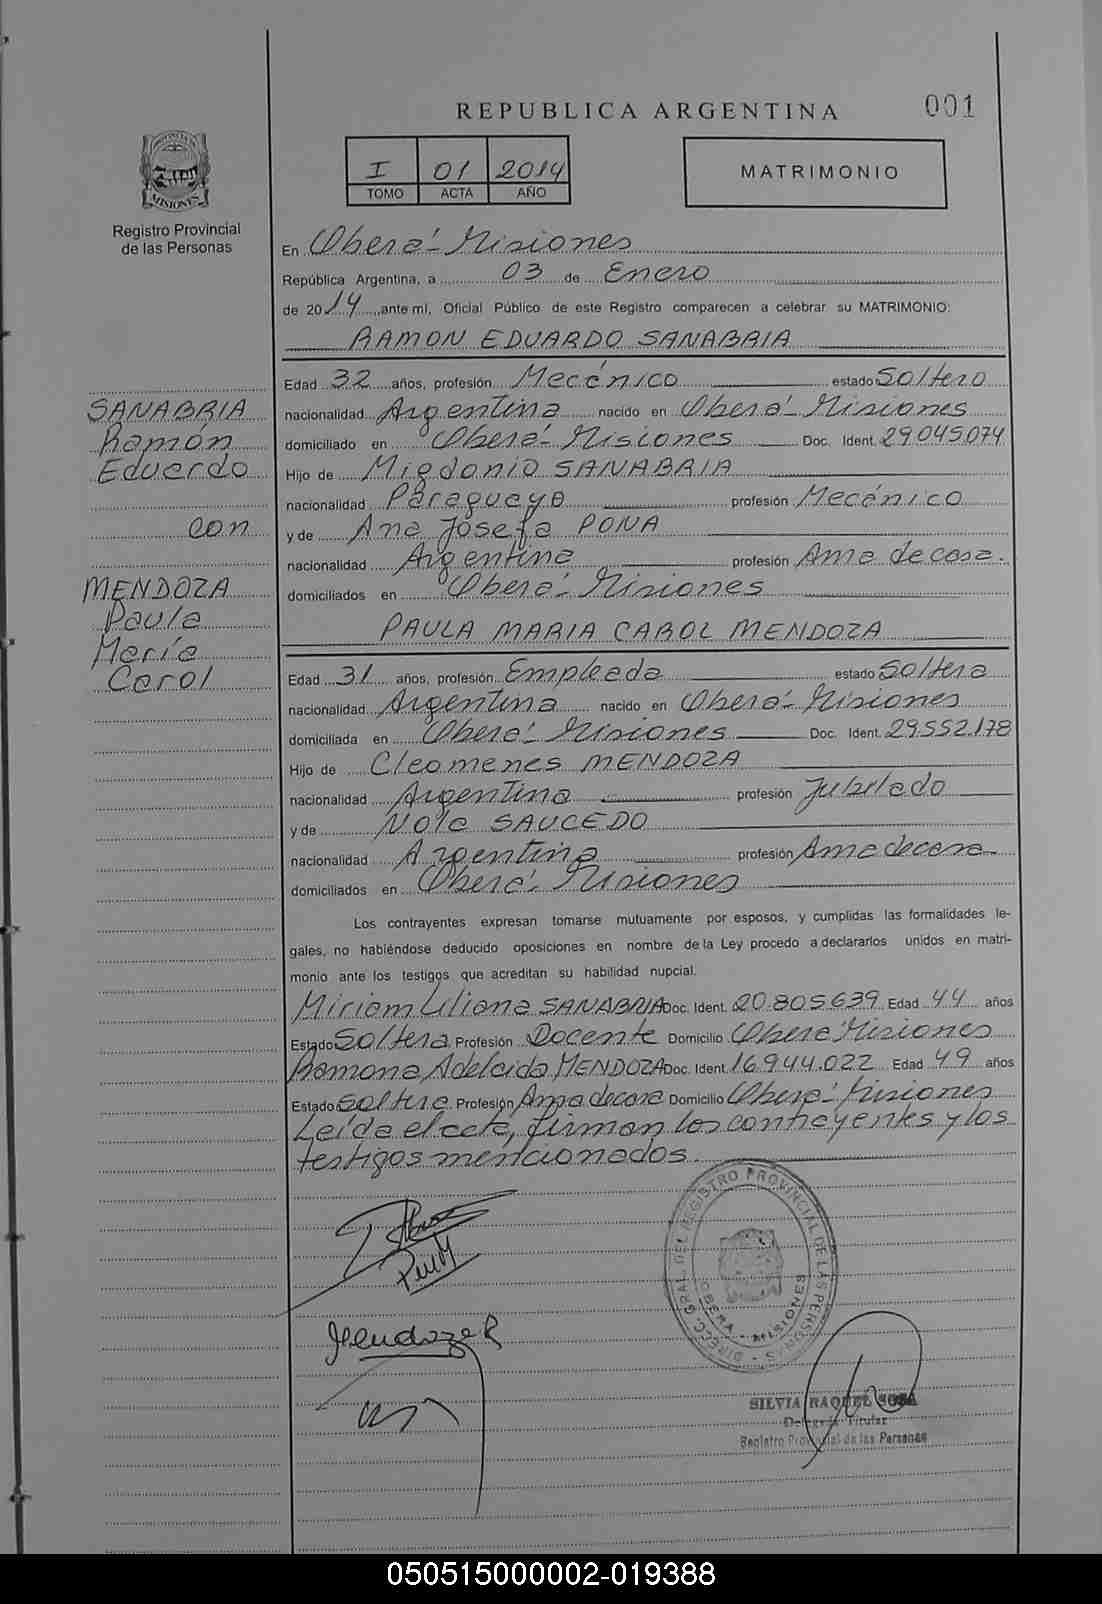 REPUBLICA ARGENTINA
001
PROVINCIA DE
MISIONES
Registro Provincial
de las Personas
I 01 2014
TOMO ACTA AÑO
MATRIMONIO
En Oberá - Misiones
República Argentina, a 03 de Enero
de 2014 ante mí, Oficial Público de este Registro comparecen a celebrar su MATRIMONIO:
RAMON EDUARDO SANABRIA
SANABRIA
Ramón
Eduardo
con
MENDOZA
Paula
María
Carol
Edad 32 años, profesión Mecánico estado Soltero
nacionalidad Argentina nacido en Oberá - Misiones
domiciliado en Oberá - Misiones Doc. Ident. 29.045.074
Hijo de Migdonio SANABRIA
nacionalidad Paraguaya profesión Mecánico
y de Ana Josefa PONA
nacionalidad Argentina profesión Ama de casa.
domiciliados en Oberá - Misiones
PAULA MARIA CAROL MENDOZA
Edad 31 años, profesión Empleada estado Soltera
nacionalidad Argentina nacido en Oberá - Misiones
domiciliada en Oberá - Misiones Doc. Ident. 29.552.178
Hijo de Cleomenes MENDOZA
nacionalidad Argentina profesión Jubilado
y de Nola SAUCEDO
nacionalidad Argentina profesión Ama de casa
domiciliados en Oberá - Misiones
Los contrayentes expresan tomarse mutuamente por esposos, y cumplidas las formalidades le-
gales, no habiéndose deducido oposiciones en nombre de la Ley procedo a declararlos unidos en matri-
monio ante los testigos que acreditan su habilidad nupcial.
Miriam Liliana SANABRIA Doc. Ident. 20.805639 Edad 44 años
Estado Soltera Profesión Docente Domicilio Oberá Misiones
Ramona Adelaida MENDOZA Doc. Ident. 16.944.022 Edad 49 años
Estado Soltera Profesión Ama de casa Domicilio Oberá - Misiones
Leída el acta, firman los contrayentes y los
testigos mencionados.
Mendoza R
DIREC. GRAL. DEL REGISTRO PROVINCIAL DE LAS PERSONAS
OBERA - MISIONES
SILVIA RAQUEL SOSA
Delegada Titular
Registro Provincial de las Personas
050515000002-019388